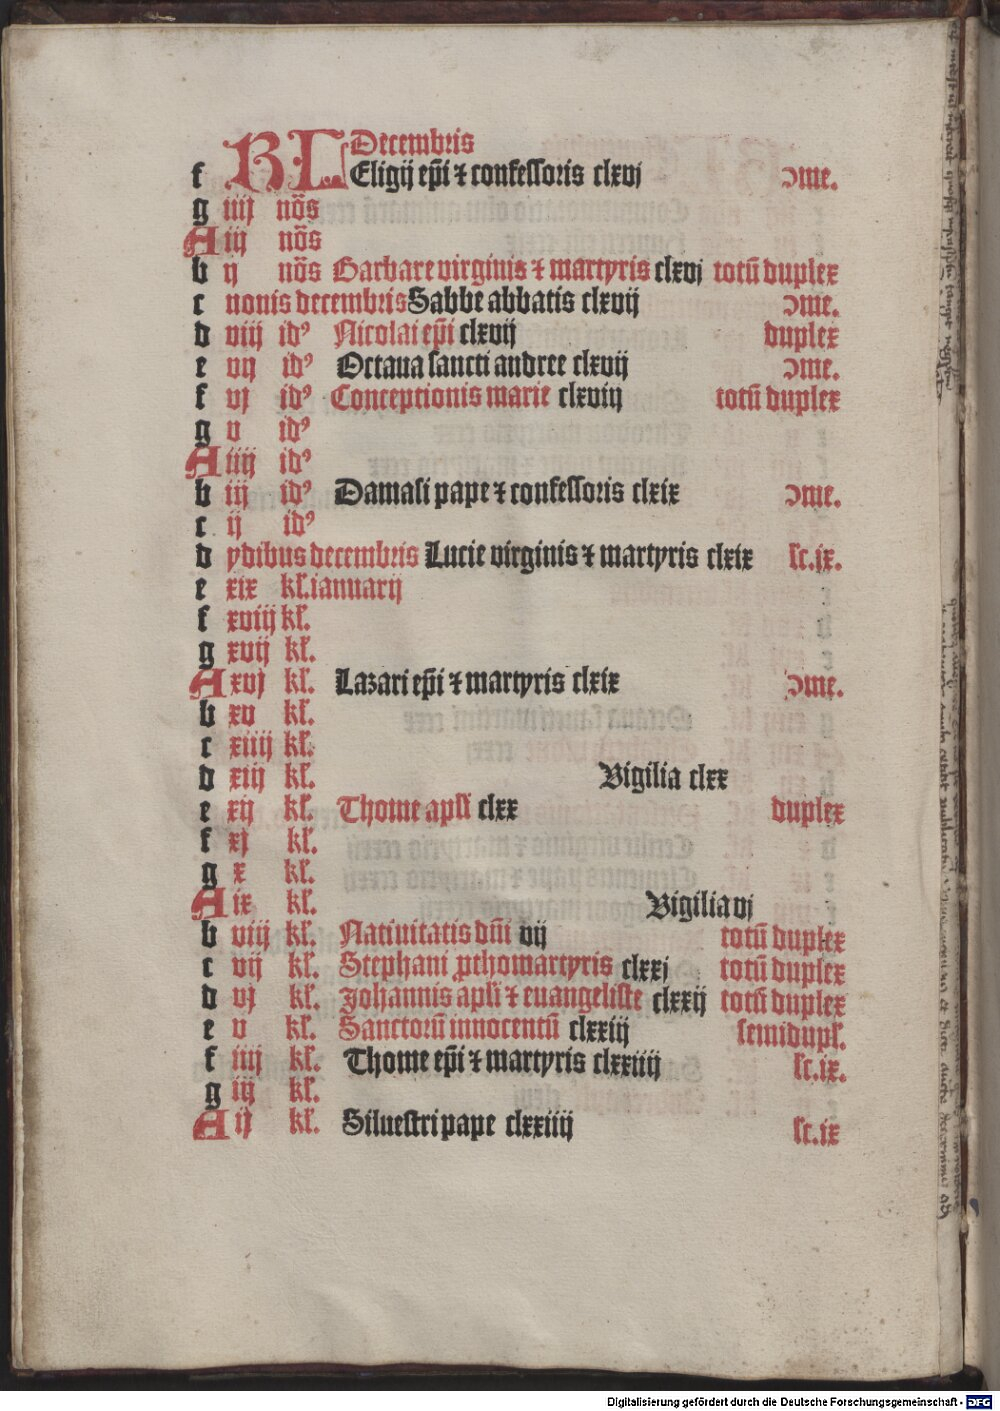 KL Decembris
f Eligij ep̄i ⁊ confessoris clxvj ↄme.
g iiij nōs
A iij nōs
b ij nōs Barbare virginis ⁊ martyris clxvj totū duplex
c nonis decembris Sabbe abbatis clxvij ↄme.
d viij idꝰ Nicolai ep̄i clxvij duplex
e vij idꝰ Octaua sancti andree clxvij ↄme.
f vj idꝰ Conceptionis marie clxviij totū duplex
g v idꝰ
A iiij idꝰ
b iij idꝰ Damasi pape ⁊ confessoris clxix ↄme.
c ij idꝰ
d ydibus decembris Lucie virginis ⁊ martyris clxix sc.ix.
e xix kl̄. ianuarij
f xviij kl̄.
g xvij kl̄.
A xvj kl̄. Lazari ep̄i ⁊ martyris clxix ↄme.
b xv kl̄.
c xiiij kl̄.
d xiij kl̄. Vigilia clxx
e xij kl̄. Thome apl̄i clxx duplex
f xj kl̄.
g x kl̄.
A ix kl̄. Vigilia vj
b viij kl̄. Natiuitatis dn̄i vij totū duplex
c vij kl̄. Stephani ꝓthomartyris clxxj totū duplex
d vj kl̄. Johannis apl̄i ⁊ euangeliste clxxij totū duplex
e v kl̄. Sanctorū innocentū clxxiij semidupl̄.
f iiij kl̄. Thome ep̄i ⁊ martyris clxxiiij sc.ix.
g iij kl̄.
A ij kl̄. Siluestri pape clxxiiij sc.ix
Digitalisierung gefördert durch die Deutsche Forschungsgemeinschaft - DFG